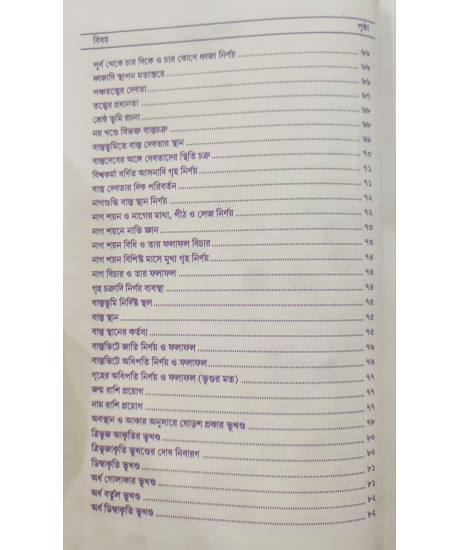 বিষয় পৃষ্ঠা
পূর্ব থেকে চার দিকে ও চার কোণে ধ্বজা নির্ণয় ৬৬
ধ্বজাদি স্থাপন মতান্তরে ৬৬
পঞ্চতত্ত্বের দেবতা ৬৬
তত্ত্বের প্রধানতা ৬৭
শ্রেষ্ঠ ভূমি রচনা ৬৮
নয় খণ্ডে বিভক্ত বাস্তুচক্র ৬৮
বাস্তুভূমিতে বাস্তু দেবতার স্থান ৬৯
বাস্তুদেবের অঙ্গে দেবতাদের স্থিতি চক্র ৭০
বিশ্বকর্মা বর্ণিত আসনাদি গৃহ নির্ণয় ৭১
বাস্তু দেবতার দিক পরিবর্তন ৭১
নাগশুদ্ধি বাস্তু স্থান নির্ণয় ৭২
নাগ শয়ন ও নাগের মাথা, পীঠ ও লেজ নির্ণয় ৭২
নাগ শয়নে নাভি জ্ঞান ৭৩
নাগ শয়ন বিধি ও তার ফলাফল বিচার ৭৩
নাগ শয়ন বিশিষ্ট মাসে মুখ্য গৃহ নির্ণয় ৭৪
নাগ বিচার ও তার ফলাফল ৭৪
গৃহ চক্রাদি নির্ণয় ব্যবস্থা ৭৪
বাস্তুভূমি নির্দিষ্ট স্থল ৭৫
বাস্তু স্থান ৭৫
বাস্তু স্থানের কর্তব্য ৭৫
বাস্তুভিটে জাতি নির্ণয় ও ফলাফল ৭৬
বাস্তুভিটে অধিপতি নির্ণয় ও ফলাফল ৭৬
গৃহের অধিপতি নির্ণয় ও ফলাফল (ভৃগুর মত) ৭৭
জন্ম রাশি প্রয়োগ ৭৭
নাম রাশি প্রয়োগ ৭৭
অবস্থান ও আকার অনুসারে ষোড়শ প্রকার ভূখণ্ড ৭৮
ত্রিভুজ আকৃতির ভূখণ্ড ৮০
ত্রিভুজাকৃতি ভূখণ্ডের দোষ নিবারণ ৮০
ডিম্বাকৃতি ভূখণ্ড ৮১
অর্ধ গোলাকার ভূখণ্ড ৮১
অর্ধ বর্তুল ভূখণ্ড ৮২
অর্ধ ডিম্বাকৃতি ভূখণ্ড ৮২